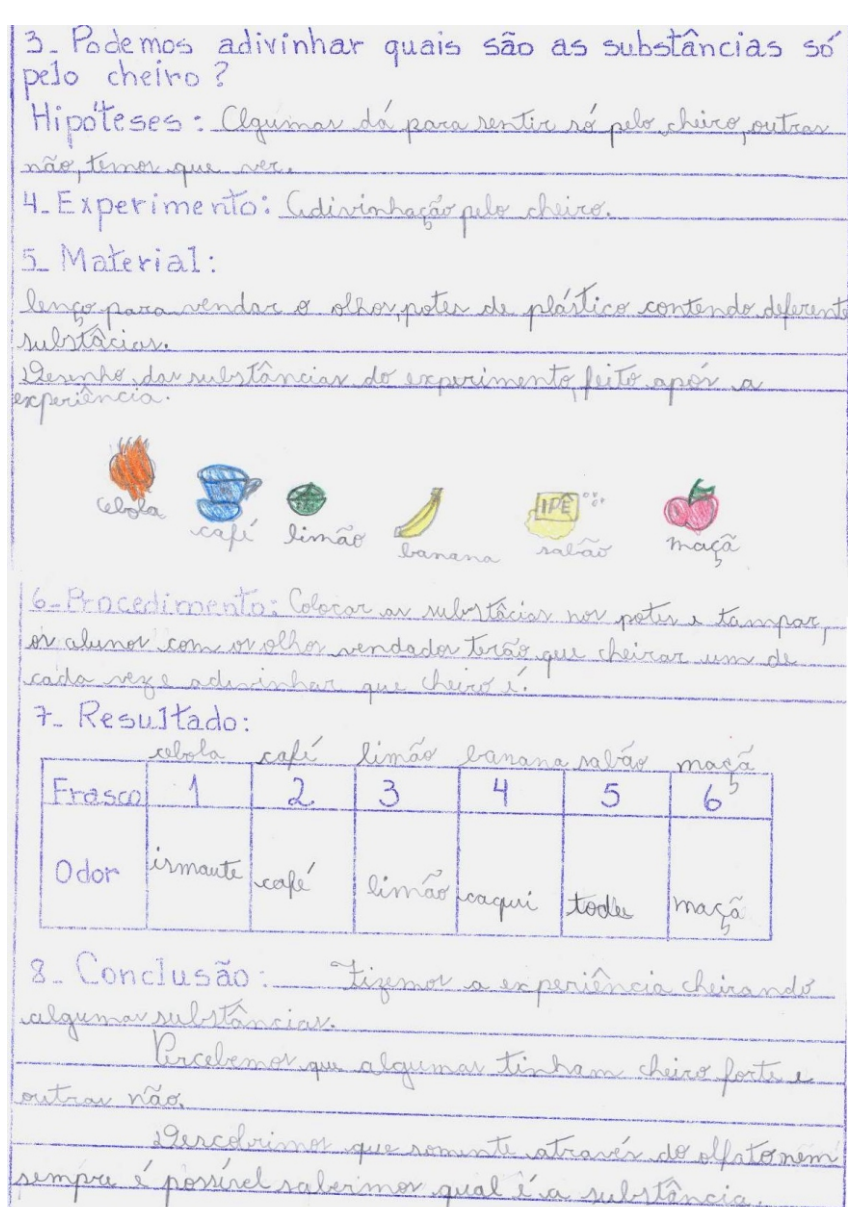 3_ Podemos adivinhar quais são as substâncias só
pelo cheiro?
Hipóteses: Algumas dá para sentir só pelo cheiro, outras
não, temos que ver.
4_ Experimento: Adivinhação pelo cheiro.
5_ Material:
lenço para vendar o olhos, potes de plástico contendo deferente
substâcias.
Desenho das substâncias do experimento feito após a
experiência.
cebola café limão banana sabão maçã
IPÊ
6_ Procedimento: Colocar as substâcias nos potes e tampar,
os alunos com os olhos vendados terão que cheirar um de
cada vez e adivinhar que cheiro é.
7_ Resultado:
cebola café limão banana sabão maçã
Frasco 1 2 3 4 5 6
Odor café limão caqui maçã
8_ Conclusão: Fizemos a experiência cheirando
algumas substâncias.
Percebemos que algumas tinham cheiro forte e
outras não.
Descobrimos que somente através do olfato nem
sempre é possível sabermos qual é a substância.